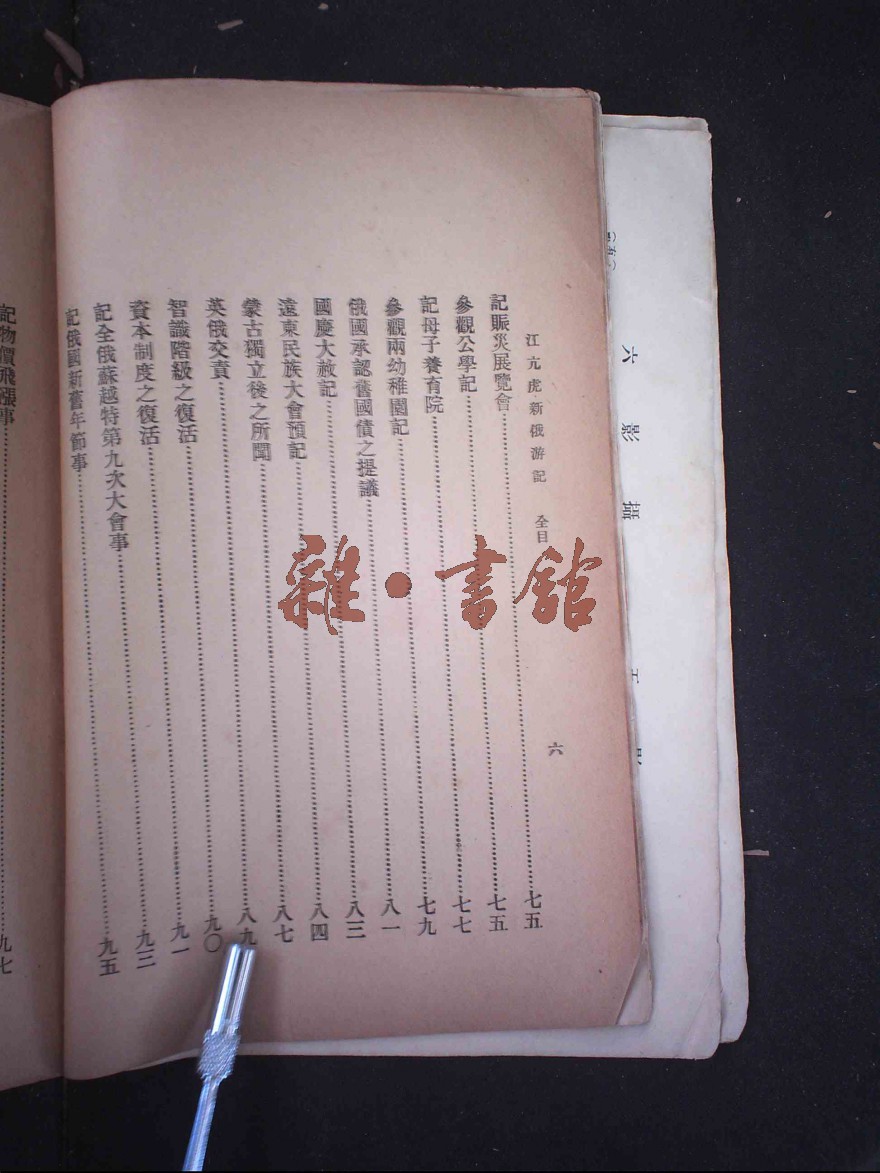 江亢虎新俄游記　全目　六
記賑災展覽會……七五
參觀公學記……七五
記母子養育院……七七
參觀兩幼稚園記……七九
俄國承認舊國債之提議……八一
國慶大赦記……八三
遠東民族大會預記……八四
蒙古獨立後之所聞……八七
英俄交責……八九
智識階級之復活……九〇
資本制度之復活……九一
記全俄蘇越特第九次大會事……九三
記俄國新舊年節事……九五
記物價飛漲事……九七
六影攝
雜·書館